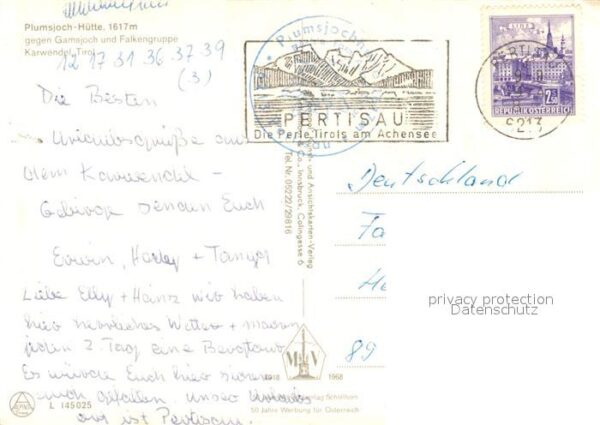 Plumsjoch-Hütte, 1617m
gegen Gamsjoch und Falkengruppe
Karwendel, Tirol
12 17 31 36 37 39
(3)
Die Besten
Urlaubsgrüße aus
dem Karwendel -
Gebirge senden Euch
Erwin, Hedy + Tanja
Liebe Elly + Heinz wir haben
hier herrliches Wetter + machen
jeden 2. Tag eine Bergtour
Es würde Euch hier sicher
auch gefallen. Unser Urlaubs
ort ist Pertisau.
L 145025
Plumsjoch
PERTISAU
Die Perle Tirols am Achensee
PERTISAU
6213
LINZ
2.50
REPUBLIK ÖSTERREICH
und Ansichtskarten-Verlag
& Co., Innsbruck, Colingasse 6
Tel. Nr. 05222/29816
Deutschland
Fa
He
89
privacy protection
Datenschutz
M V
1918 1968
50 Jahre Werbung für Österreich